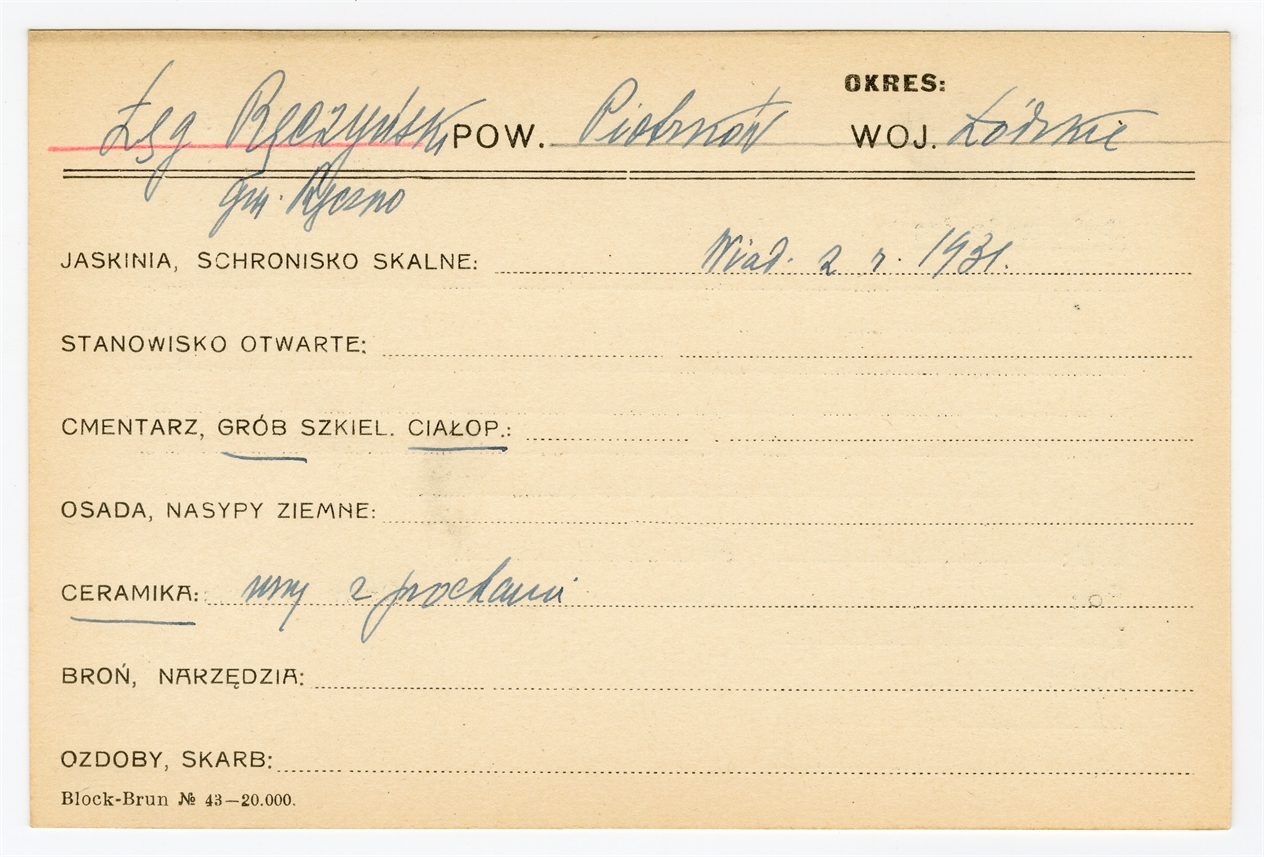 OKRES:
Łęg Ręczyński POW. Piotrków WOJ. Łódzkie
gm. Ręczno
JASKINIA, SCHRONISKO SKALNE: Wiad. z r. 1931.
STANOWISKO OTWARTE:
CMENTARZ, GRÓB SZKIEL. CIAŁOP.:
OSADA, NASYPY ZIEMNE:
CERAMIKA: urny z prochami
BROŃ, NARZĘDZIA:
OZDOBY, SKARB:
Block-Brun № 43—20.000.